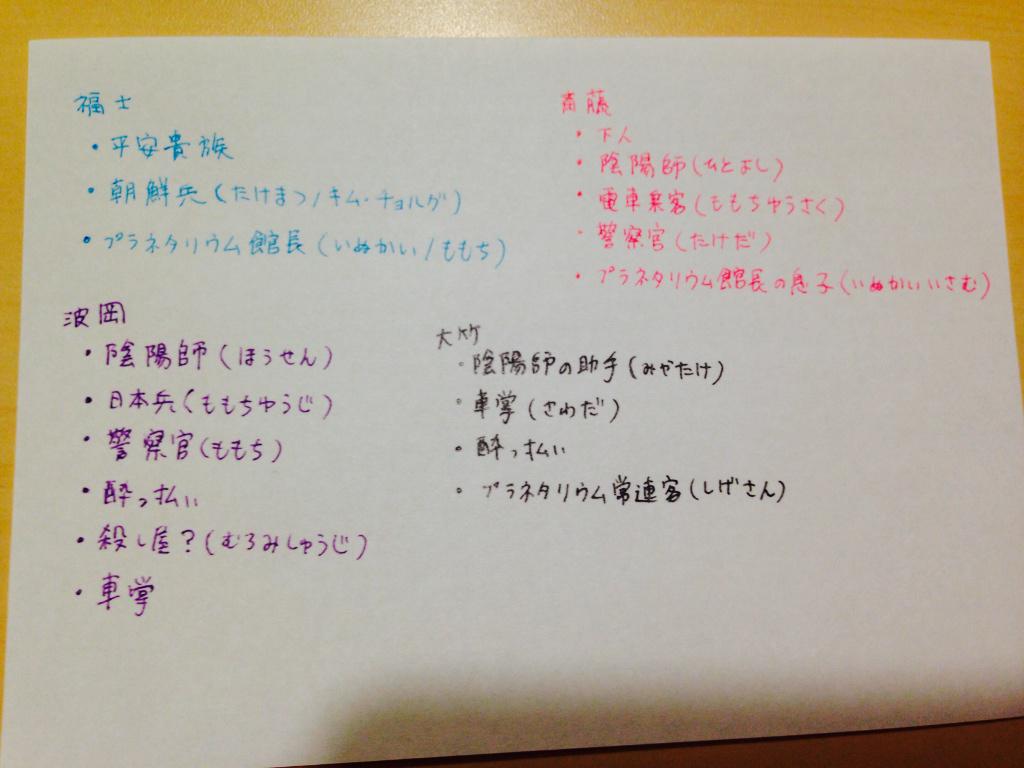 福士
・平安貴族
・朝鮮兵(たけまつ/キム・チョルグ)
・プラネタリウム館長(いぬかい/ももち)
斉藤
・下人
・陰陽師(ひとよし)
・電車乗客(ももちゅうさく)
・警察官(たけだ)
・プラネタリウム館長の息子(いぬかいいさむ)
波岡
・陰陽師(ほうせん)
・日本兵(ももちゅうじ)
・警察官(ももち)
・酔っ払い
・殺し屋?(むろみしゅうじ)
・車掌
大竹
・陰陽師の助手(みやたけ)
・車掌(さわだ)
・酔っ払い
・プラネタリウム常連客(しげさん)